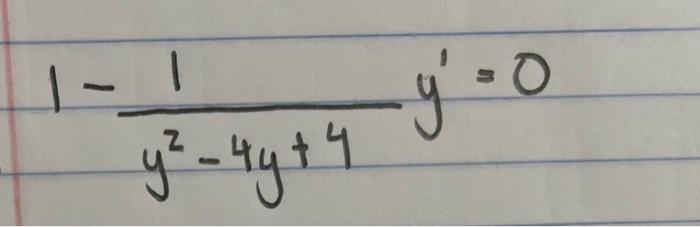 1 - \frac{1}{y^2 - 4y + 4} y' = 0